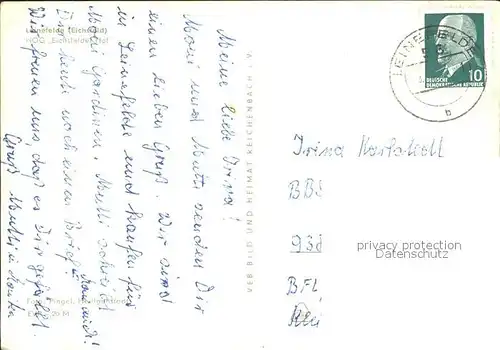 Leinefelde (Eichsfeld)
HOG „Eichsfelder Hof"
Meine liebe Irina!
Moni und Mutti senden Dir
einen lieben Gruß. Wir sind
in Leinefelde und kaufen für
Moni Gardinen. Mutti schreibt
Dir heute noch einen Brief.
Wir freuen uns, daß es Dir gefällt.
Gruß Mutti u.
VEB BILD UND HEIMAT REICHENBACH i. V.
LEINEFELDE
b
DEUTSCHE
DEMOKRATISCHE REPUBLIK
10
Irina
BBS
privacy protection
Datenschutz
BFL